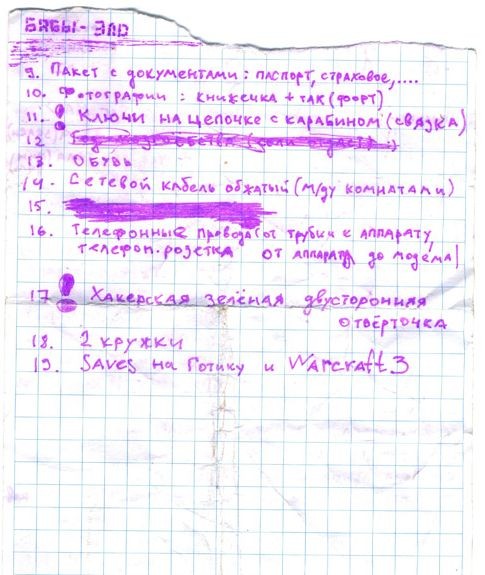 БЯБЫ - ЗЛО
9. Пакет с документами: паспорт, страховое,....
10. Фотографии: книжечка + так (форт)
11. ! Ключи на цепочке с карабином (связка)
12
13. Обувь
14. Сетевой кабель обжатый (м/ду комнатами)
15.
16. Телефонные провода (от трубки к аппарату,
телефон. розетка от аппарата до модема)
17 ! Хакерская зелёная двусторонняя
отвёрточка
18. 2 кружки
19. Saves на Готику и Warcraft 3